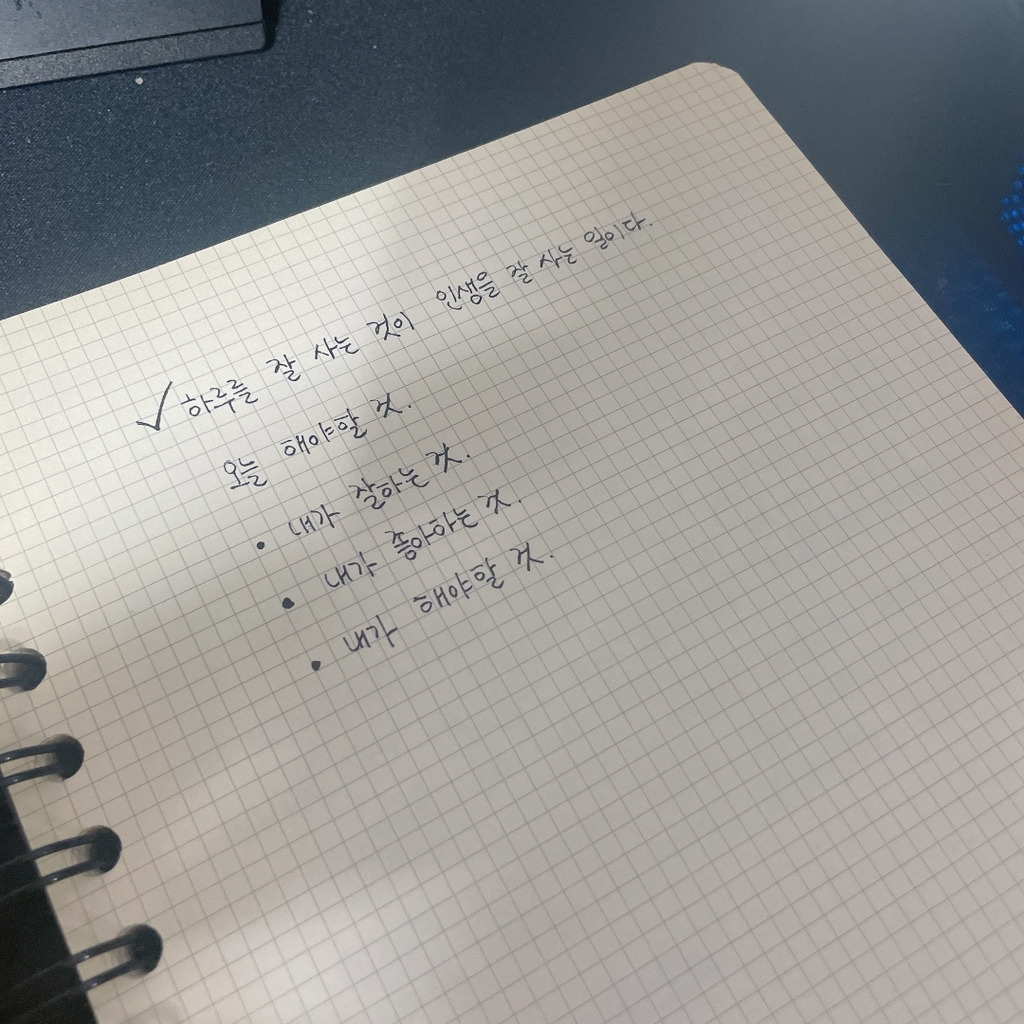 ✓ 하루를 잘 사는 것이 인생을 잘 사는 일이다.
오늘 해야할 것.
• 내가 잘하는 것.
• 내가 좋아하는 것.
• 내가 해야할 것.